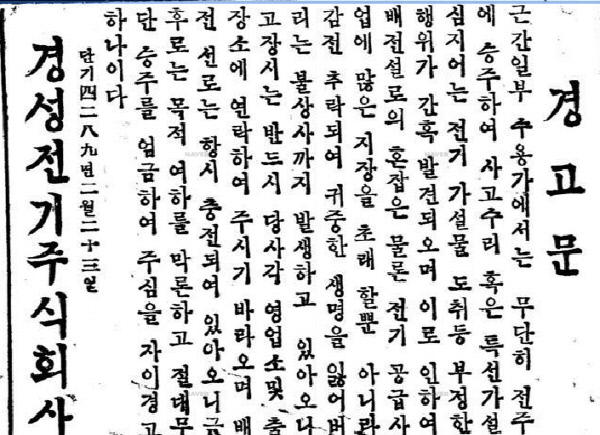 경고문
근간일부 수용가에서는 무단히 전주
에 승주하여 사고수리 혹은 특선가설
심지어는 전기 가설물 도취등 부정한
행위가 간혹 발견되오며 이로 인하여
배전설로의 혼잡은 물론 전기 공급사
업에 많은 지장을 초래 할뿐 아니라
감전 추락되여 귀중한 생명을 잃어버
리는 불상사까지 발생하고 있아오나
고장시는 반드시 당사각 영업소및 출
장소에 연락하여 주시기 바라오며 배
전 선로는 항시 충전되여 있아오니금
후로는 목적 여하를 막론하고 절대무
단 승주를 엄금하여 주심을 자이경고
하나이다
단기四二八九년二월二十三일
경성전기주식회사